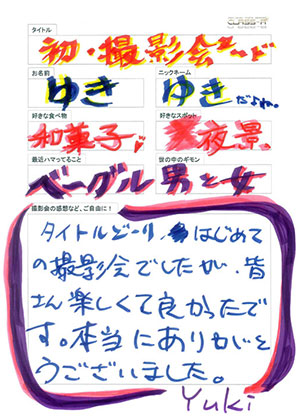 CLASSY
タイトル
初・撮影会モード
お名前
ニックネーム
ゆき
ゆきだよね。
好きな食べ物
好きなスポット
和菓子
夜景
最近ハマってること
世の中のギモン
ベーグル
男と女
撮影会の感想など、ご自由に!
タイトルどーり、はじめて
の撮影会でしたが、皆
さん楽しくて良かったで
す。本当にありがと
うございました。
Yuki